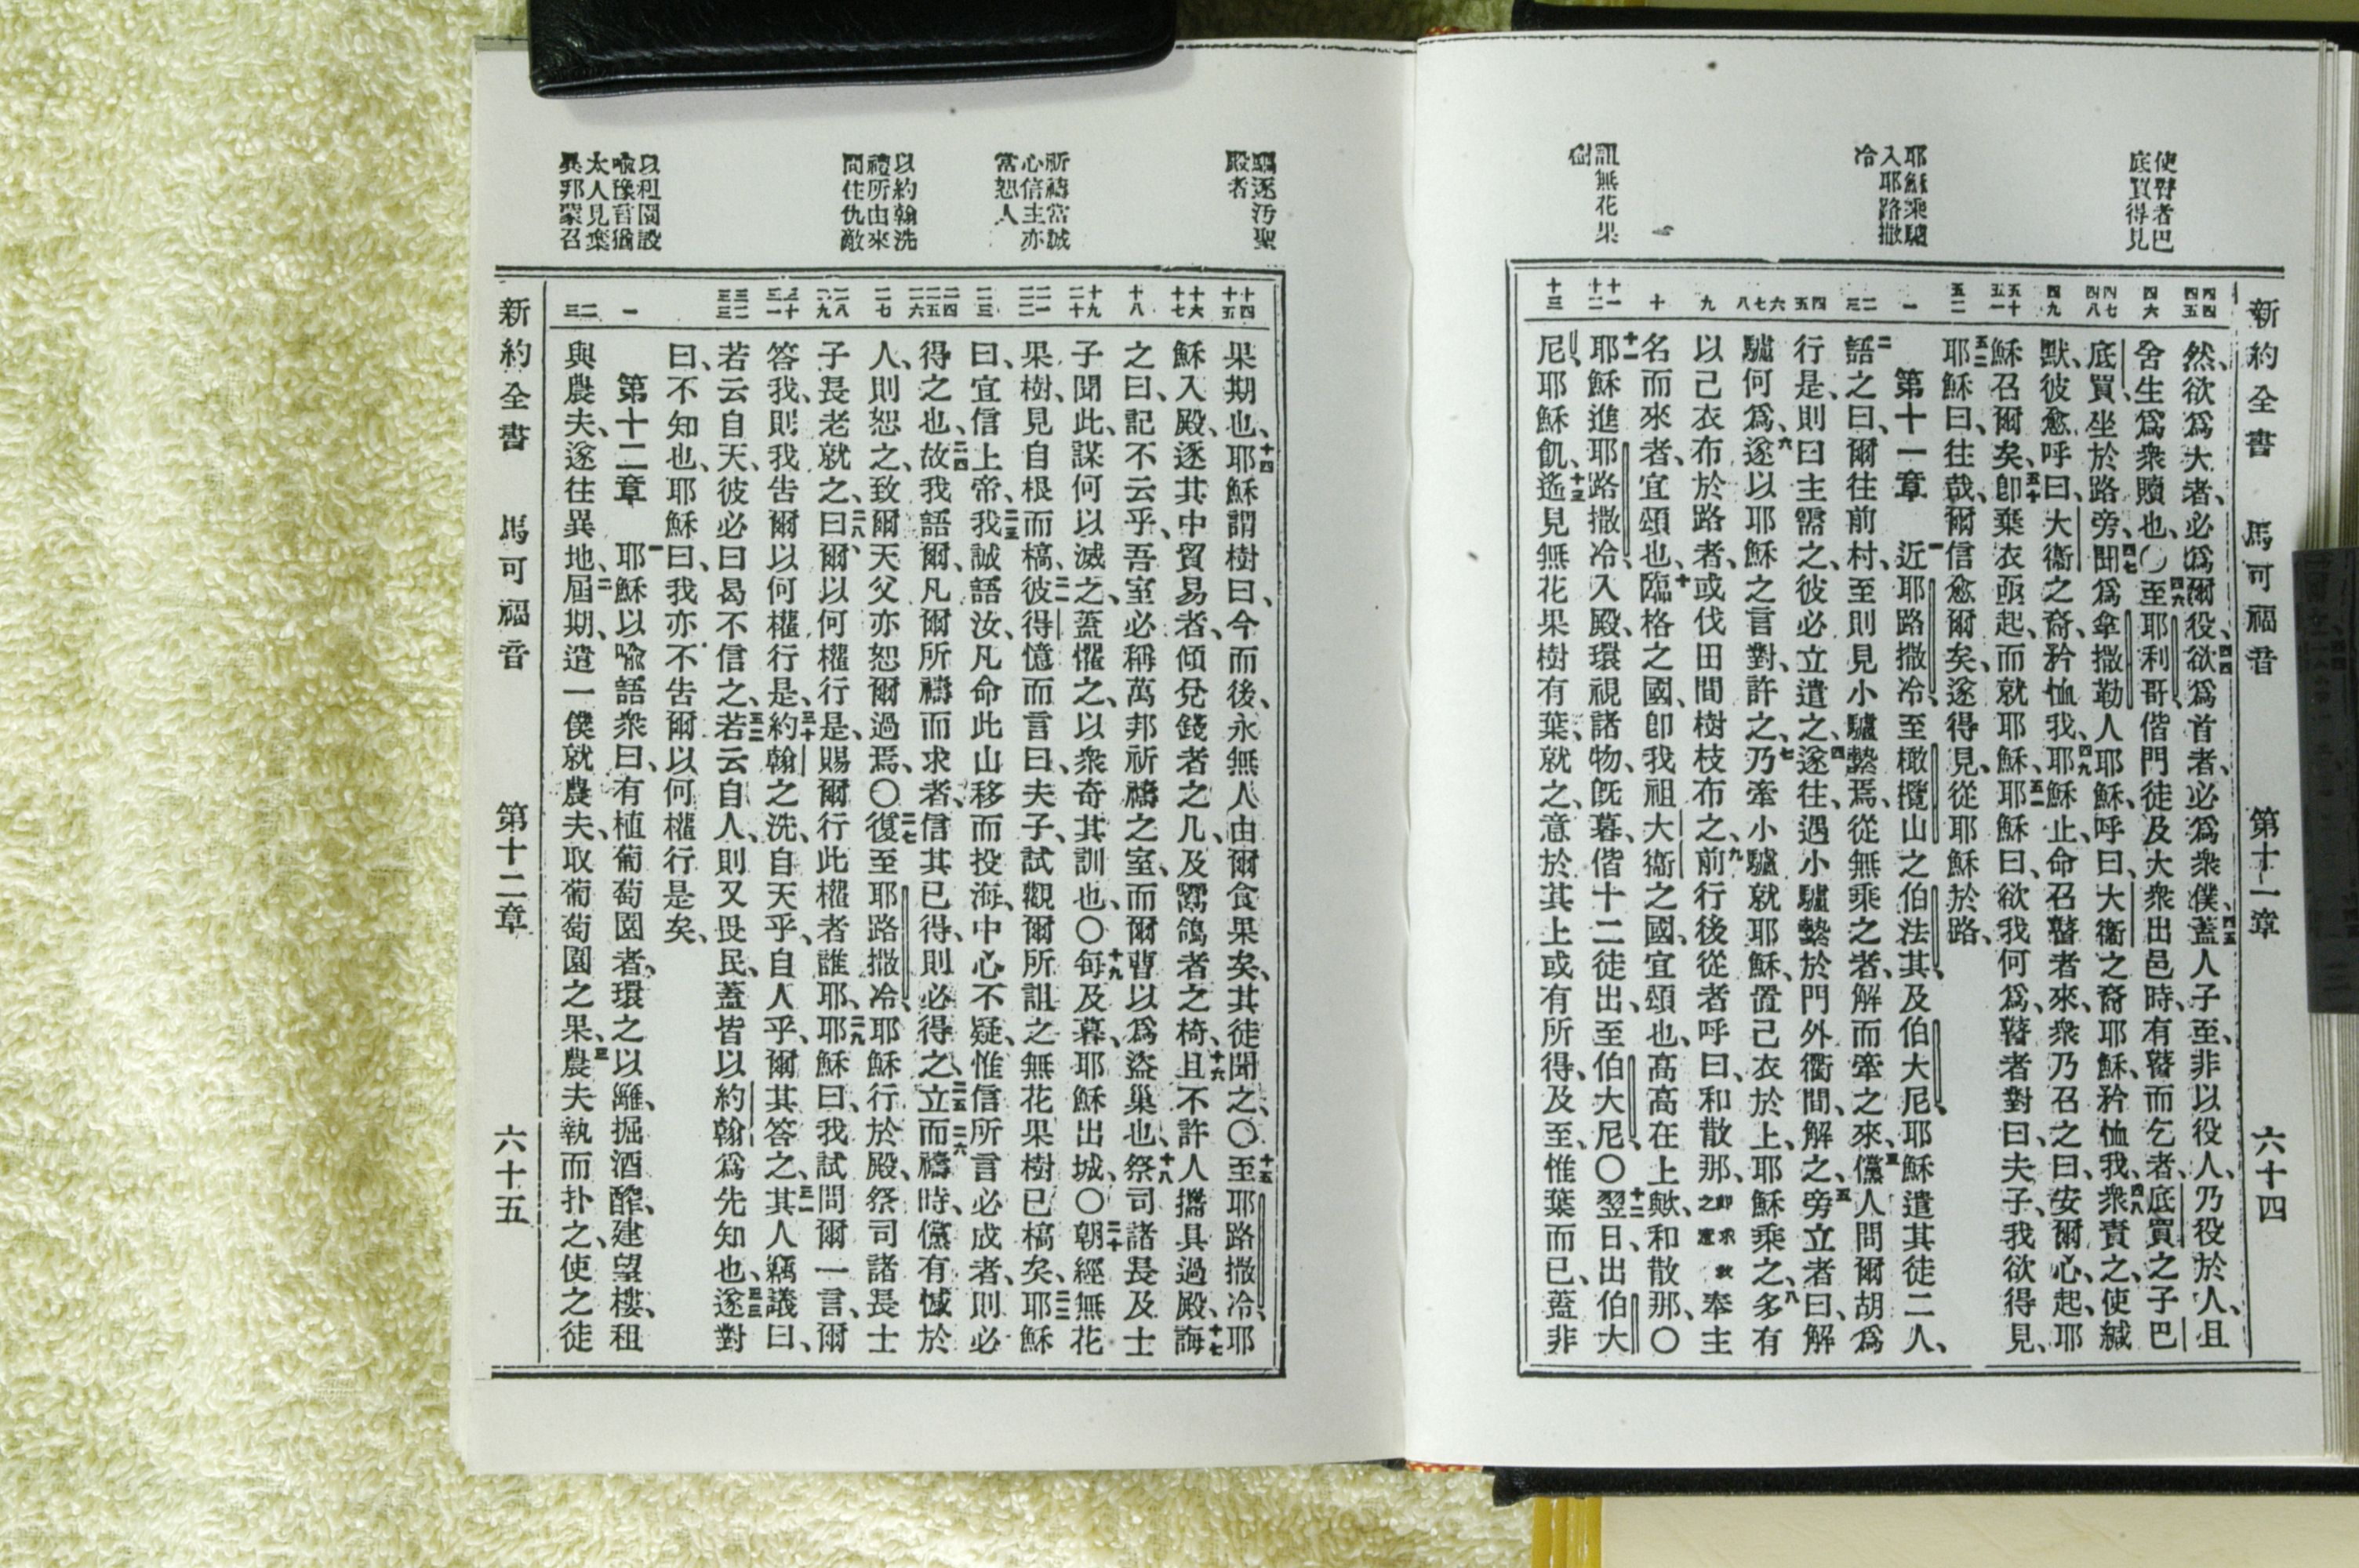 新約全書 馬可福音 第十一章 六十四
使瞽者巴
底買得見
耶穌乘驢
入耶路撒
冷
詛無花果
樹
四四 四五
四六
四七 四八
四九
五十 五一
五二
一
二 三
四 五
六 七 八
九
十
十一 十二
十三
然、欲爲大者、必爲爾役、四四欲爲首者、必爲衆僕、四五蓋人子至、非以役人、乃役於人、且
舍生爲衆贖也、〇四六至耶利哥、偕門徒及大衆出邑時、有瞽而乞者、底買之子巴
底買、坐於路旁、四七聞爲拿撒勒人耶穌、呼曰、大衞之裔耶穌、矜恤我、四八衆責之、使緘
默、彼愈呼曰、大衞之裔、矜恤我、四九耶穌止、命召瞽者來、衆乃召之曰、安爾心、起、耶
穌召爾矣、五十卽棄衣亟起、而就耶穌、五一耶穌曰、欲我何爲、瞽者對曰、夫子、我欲得見、
五二耶穌曰、往哉、爾信愈爾矣、遂得見、從耶穌於路、
第十一章 一近耶路撒冷、至橄欖山之伯法其、及伯大尼、耶穌遣其徒二人、
二語之曰、爾往前村、至則見小驢縶焉、從無乘之者、解而牽之來、三儻人問爾胡爲
行是、則曰主需之、彼必立遣之、四遂往、遇小驢縶於門外衢間、解之、五旁立者曰、解
驢何爲、六遂以耶穌之言對、許之、七乃牽小驢就耶穌、置己衣於上、耶穌乘之、八多有
以己衣布於路者、或伐田間樹枝布之、九前行後從者呼曰、和散那、卽求救之意奉主
名而來者、宜頌也、十臨格之國、卽我祖大衞之國、宜頌也、高高在上歟、和散那、〇
十一耶穌進耶路撒冷、入殿、環視諸物、旣暮、偕十二徒出、至伯大尼、〇十二翌日、出伯大
尼、耶穌飢、十三遙見無花果樹有葉、就之、意於其上或有所得、及至、惟葉而已、蓋非
驅逐汚聖
殿者
祈禱當誠
心信主亦
當恕人
以約翰洗
禮所由來
問住仇敵
以租園設
喩豫言猶
太人見棄
異邦蒙召
十四 十五
十六 十七
十八
十九 二十
二一 二二
二三
二四 二五 二六
二七
二八 二九
三十 三一
三二 三三
一
二 三
果期也、十四耶穌謂樹曰、今而後、永無人由爾食果矣、其徒聞之、〇十五至耶路撒冷、耶
穌入殿、逐其中貿易者、傾兌錢者之几、及鬻鴿者之椅、十六且不許人攜具過殿、十七誨
之曰、記不云乎、吾室必稱萬邦祈禱之室、而爾曹以爲盜巢也、十八祭司諸長及士
子聞此、謀何以滅之、蓋懼之、以衆奇其訓也、〇十九每及暮、耶穌出城、〇二十朝經無花
果樹、見自根而槁、二一彼得憶而言曰、夫子、試觀爾所詛之無花果樹已槁矣、二二耶穌
曰、宜信上帝、二三我誠語汝、凡命此山移而投海、中心不疑、惟信所言必成者、則必
得之也、二四故我語爾、凡爾所禱而求者、信其已得、則必得之、二五立而禱時、儻有憾於
人、則恕之、致爾天父亦恕爾過焉、〇二七復至耶路撒冷、耶穌行於殿、祭司諸長士
子長老就之、二八曰爾以何權行是、賜爾行此權者誰耶、二九耶穌曰、我試問爾一言、爾
答我、則我告爾以何權行是、三十約翰之洗、自天乎、自人乎、爾其答之、三一其人竊議曰、
若云自天、彼必曰曷不信之、三二若云自人、則又畏民、蓋皆以約翰爲先知也、三三遂對
曰、不知也、耶穌曰、我亦不告爾以何權行是矣、
第十二章 一耶穌以喩語衆曰、有植葡萄園者、環之以籬、掘酒醡、建望樓、租
與農夫、遂往異地、二屆期、遣一僕就農夫、取葡萄園之果、三農夫執而扑之、使之徒
新約全書 馬可福音 第十二章 六十五